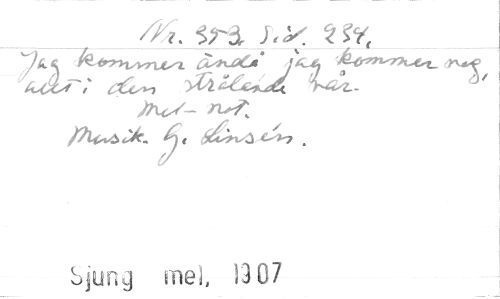 Nr. 353. Sid. 234.
Jag kommer ändå jag kommer nog,
allt i den strålande vår.
Mel-not.
Musik. G. Linsén.
Sjung mel, 1907